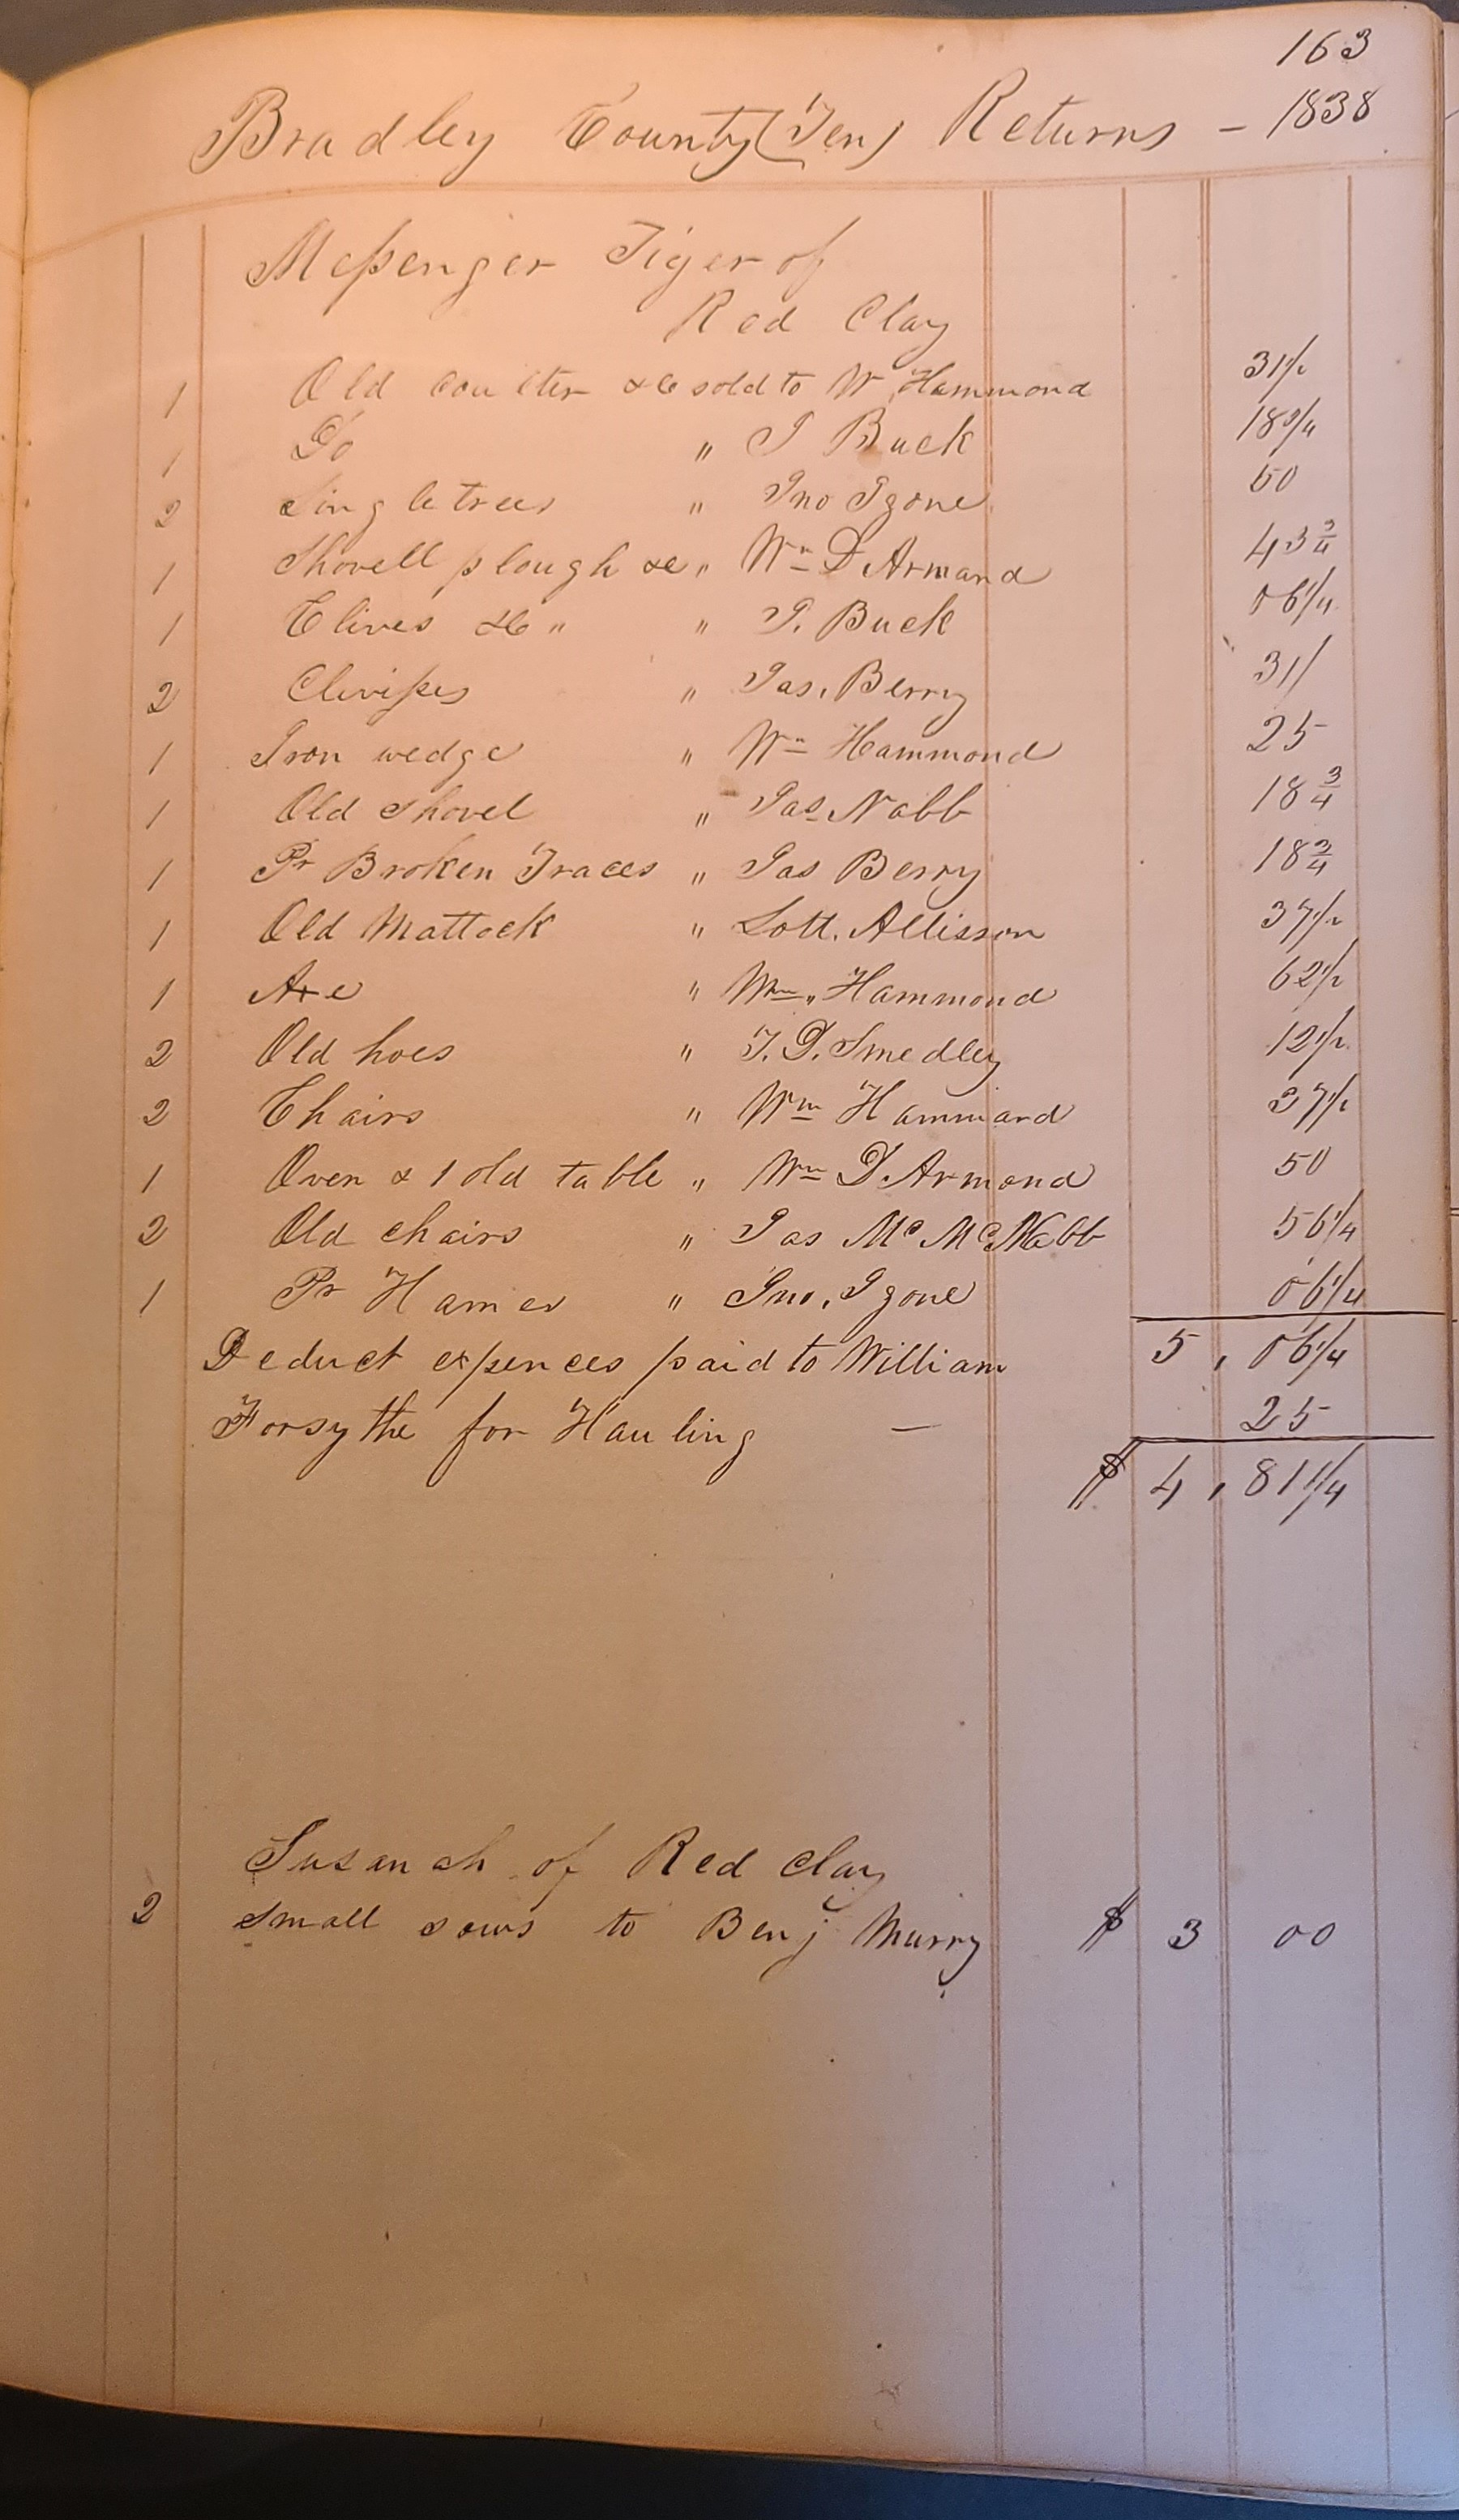 163
Bradley County (Ten) Returns - 1838
Messenger Tiger of
Red Clay
1 Old coulter &c sold to W Hammond 31 1/2
1 Do " J Buck 18 3/4
2 Singletrees " Jno Igone 50
1 Shovell plough &c " Wm D Armand 43 3/4
1 Clives &c " " J. Buck 06 1/4
2 Clivises " Jas. Berry 31
1 Iron wedge " Wm Hammond 25
1 Old Shovel " Jas Nabb 18 3/4
1 Pr Broken Traces " Jas Berry 18 3/4
1 Old Mattock " Lott. Allisson 37 1/2
1 Axe " Wm Hammond 62 1/2
2 Old hoes " T. D. Smedley 12 1/2
2 Chairs " Wm Hammand 37 1/2
1 Oven & 1 old table " Wm D. Armond 50
2 Old chairs " Jas Mc McNabb 56 1/4
1 Pr Hames " Jno. Igone 06 1/4
Deduct expences paid to William 5, 06 1/4
Forsythe for Hauling — 25
$ 4, 81 1/4
Susanah of Red Clay
2 Small sows to Benj Murry $ 3 00